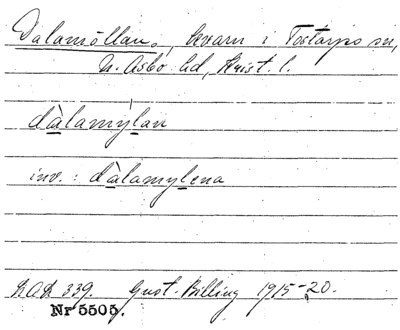 Dalamöllan, kvarn i Tostarps sn,
N. Åsbo hd, Krist. l.
dàlamylan
inv.: dàlamylena
LAL 339. Gust. Billing 1915-20.
Nr 5505.